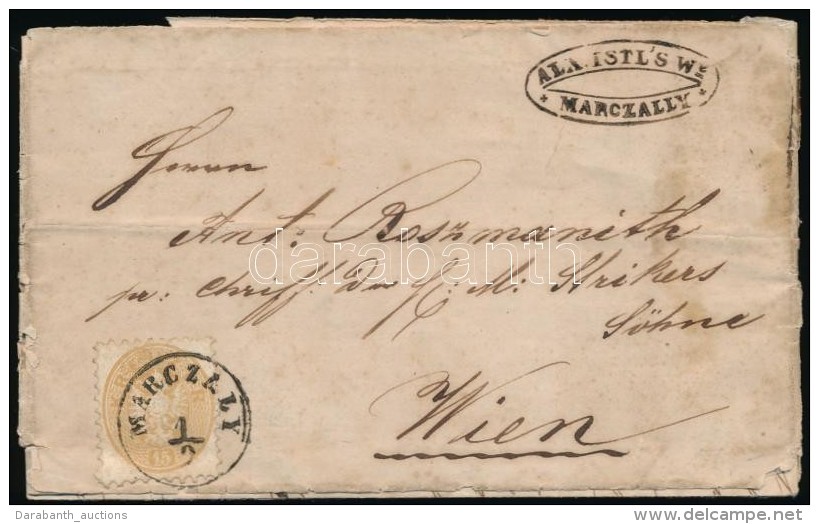 ALX. ISTL'S WE
* MARCZALLY *
Herrn
Ant: Roszmanith
pr: H: M: Strikers
Söhne
Wien
MARCZALY
1/2
15
darabanth
Darabanth_auctions